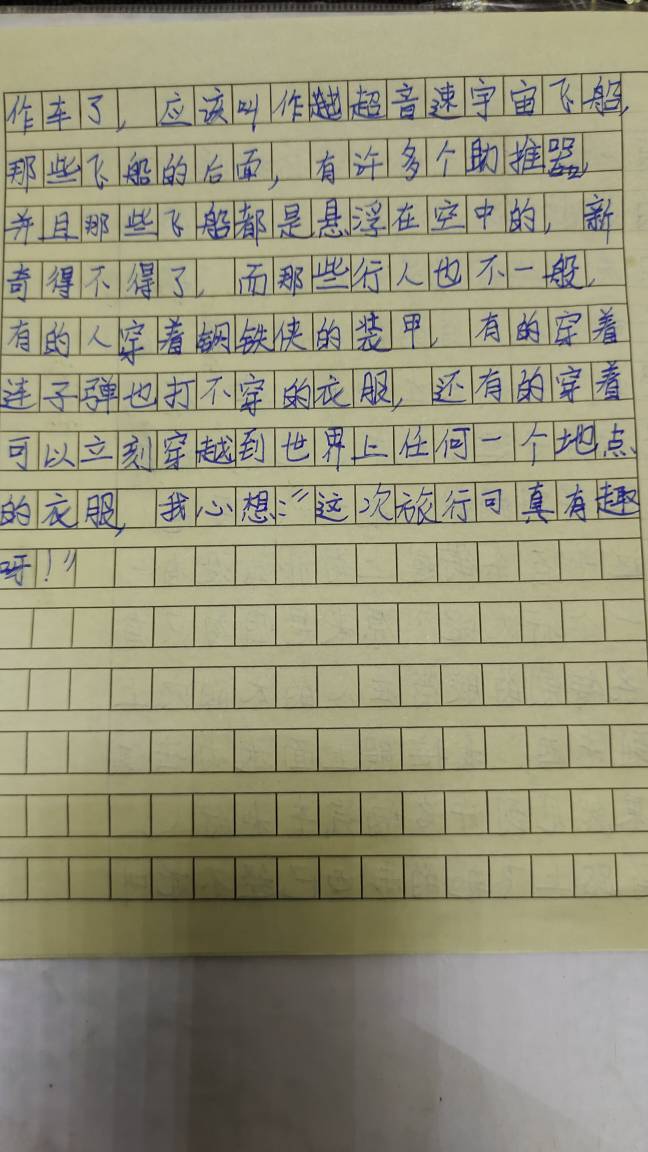 作车了，应该叫作超音速宇宙飞船，
那些飞船的后面，有许多个助推器，
并且那些飞船都是悬浮在空中的，新
奇得不得了，而那些行人也不一般，
有的人穿着钢铁侠的装甲，有的穿着
连子弹也打不穿的衣服，还有的穿着
可以立刻穿越到世界上任何一个地点
的衣服，我心想：“这次旅行可真有趣
呀！”